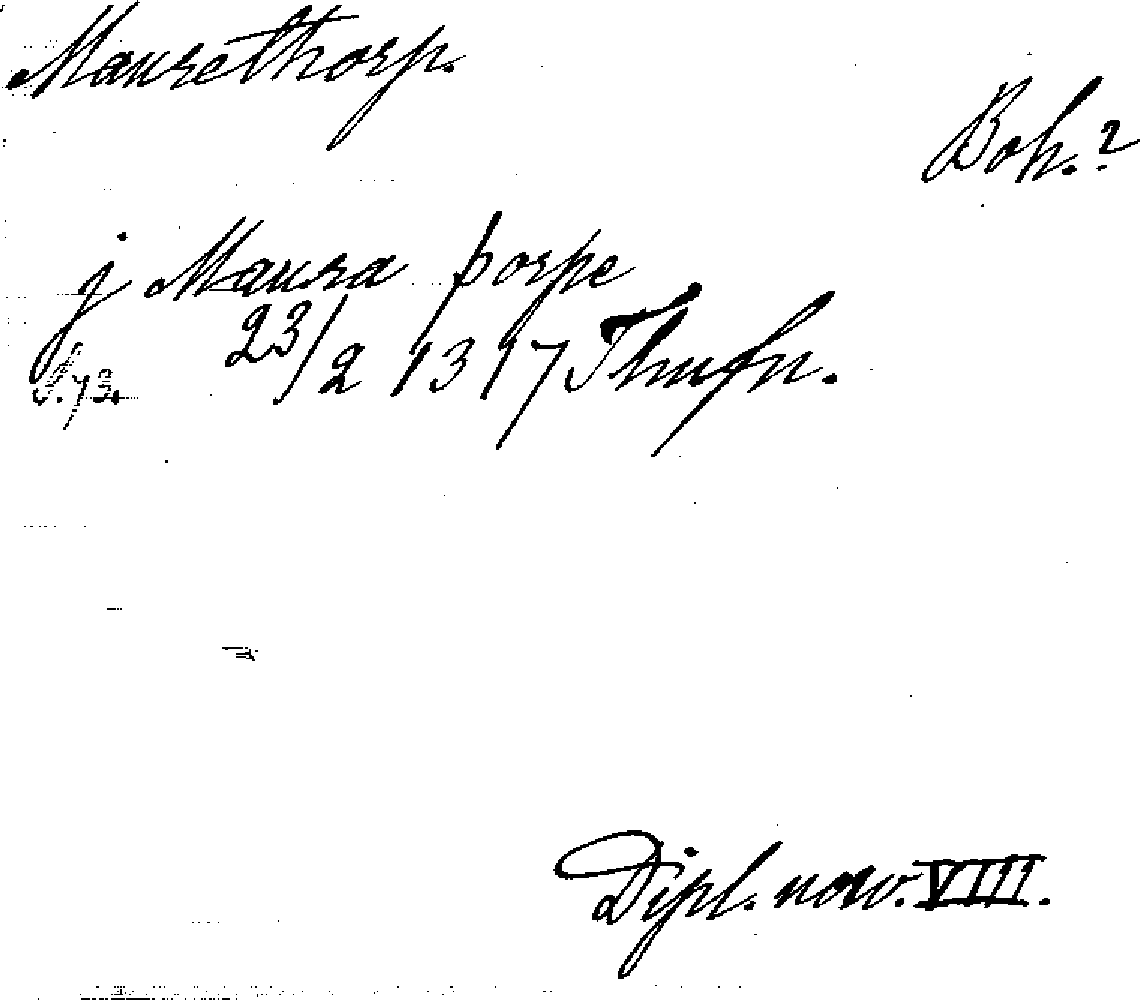 Maurethorp.
Boh.?
j Maura þorpe
23/2 1317 Thufn.
S. 73.
Dipl. norv. VIII.